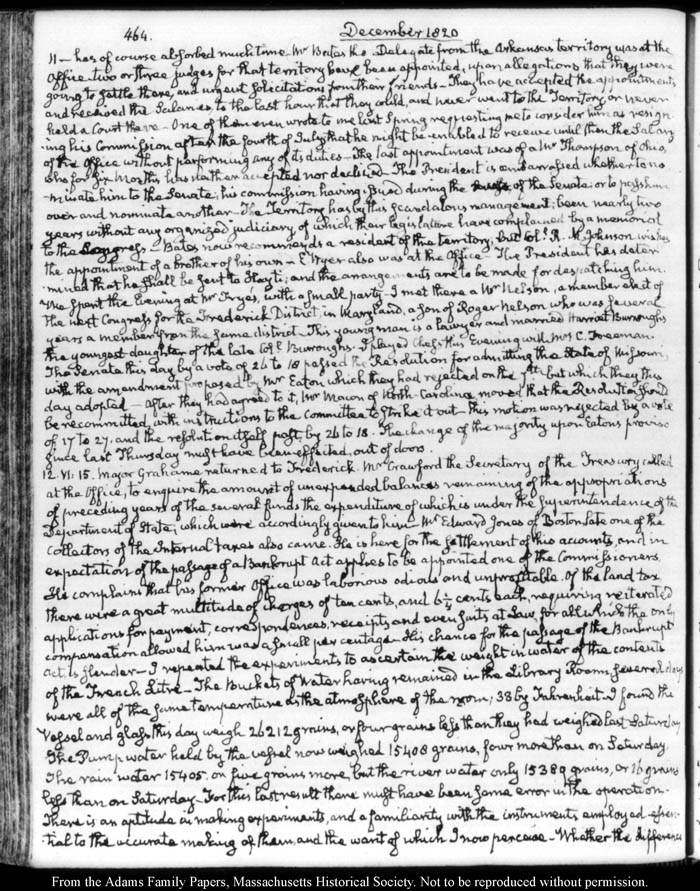 464. December 1820
11 — has of course absorbed much time. Mr Bates the Delegate from the Arkansas territory was at the
Office. two or three judges for that territory have been appointed, upon allegations that they were
going to settle there, and urgent solicitations from their friends — They have accepted the appointments
and received the Salaries to the last hour that they could, and never went to the Territory, or never
held a Court there — One of them even wrote to me last Spring requesting me to consider him as resign-
ing his Commission after the fourth of July that he might be enabled to receive until then the Salary
of the Office without performing any of its duties — The last appointment was of a Mr Thompson of Ohio,
who for six Months has neither accepted nor declined — The President is embarrassed whether to no-
minate him to the Senate; his commission having issued during the recess of the Senate; or to pass him
over and nominate another — The Territory has by this scandalous management; been nearly two
years without any organized judiciary of which their legislature have complained by a memorial
to the Congress — Bates now recommends a resident of the territory; but Coll. R. M. Johnson wishes
the appointment of a brother of his own — E. Wyer also was at the Office — The President has deter-
mined that he shall be sent to Hayti; and the arrangements are to be made for despatching him.
We spent the Evening at Mr Frye's, with a small party — I met there a Mr Nelson, a member elect of
the next Congress for the Frederick District, in Maryland, a son of Roger Nelson who was several
years a member from the same district — This young man is a lawyer and married Harriet Burroughs
the youngest daughter of the late Coll. Burroughs. I played Chess this Evening with Mrs C. Freeman.
The Senate this day by a vote of 26 to 18 passed the Resolution for admitting the State of Missouri,
with the amendment proposed by Mr Eaton which they had rejected on the 7th but which they this
day adopted — After they had agreed to it, Mr Macon of North-Carolina moved that the Resolution should
be recommitted, with instructions to the Committee to strike it out — This motion was rejected by a vote
of 17 to 27; and the resolution itself past, by 26 to 18. The change of the majority upon Eaton's proviso
since last Thursday must have been effected, out of doors.
12. VI:15. Major Grahame returned to Frederick. Mr Crawford the Secretary of the Treasury called
at the Office, to enquire the amount of unexpended balances remaining of the appropriations
of preceding years of the several funds the expenditure of which is under the superintendence of the
Department of State; which were accordingly given to him — Mr Edward Jones of Boston late one of the
Collectors of the Internal taxes also came. He is here for the settlement of his accounts, and in
expectation of the passage of a Bankrupt Act applies to be appointed one of the Commissioners.
He complains that his former Office was laborious odious and unprofitable. Of the land tax
there were a great multitude of charges of ten cents, and 6½ cents each, requiring reiterated
applications for payment, correspondences, receipts and even suits at Law, for all which the only
compensation allowed him was a small per centage — His chance for the passage of the Bankrupt
act, is slender — I repeated the experiments to ascertain the weight in water of the contents
of the French Litre — The Buckets of Water having remained in the Library Room, several days
were all of the same temperature as the atmosphere of the room; 38 by Fahrenheit. I found the
Vessel and glass this day weigh 26212 grains, or four grains less than they had weighed last Saturday
The Pump water held by the vessel now weighed 15408 grains, four more than on Saturday.
The rain water 15405. or five grains more, but the river water only 15389 grains, or 16 grains
less than on Saturday — For this last result there must have been some error in the operation —
There is an aptitude in making experiments, and a familiarity with the instruments employed essen-
tial to the accurate making of them, and the want of which I now perceive — Whether the difference
From the Adams Family Papers, Massachusetts Historical Society. Not to be reproduced without permission.